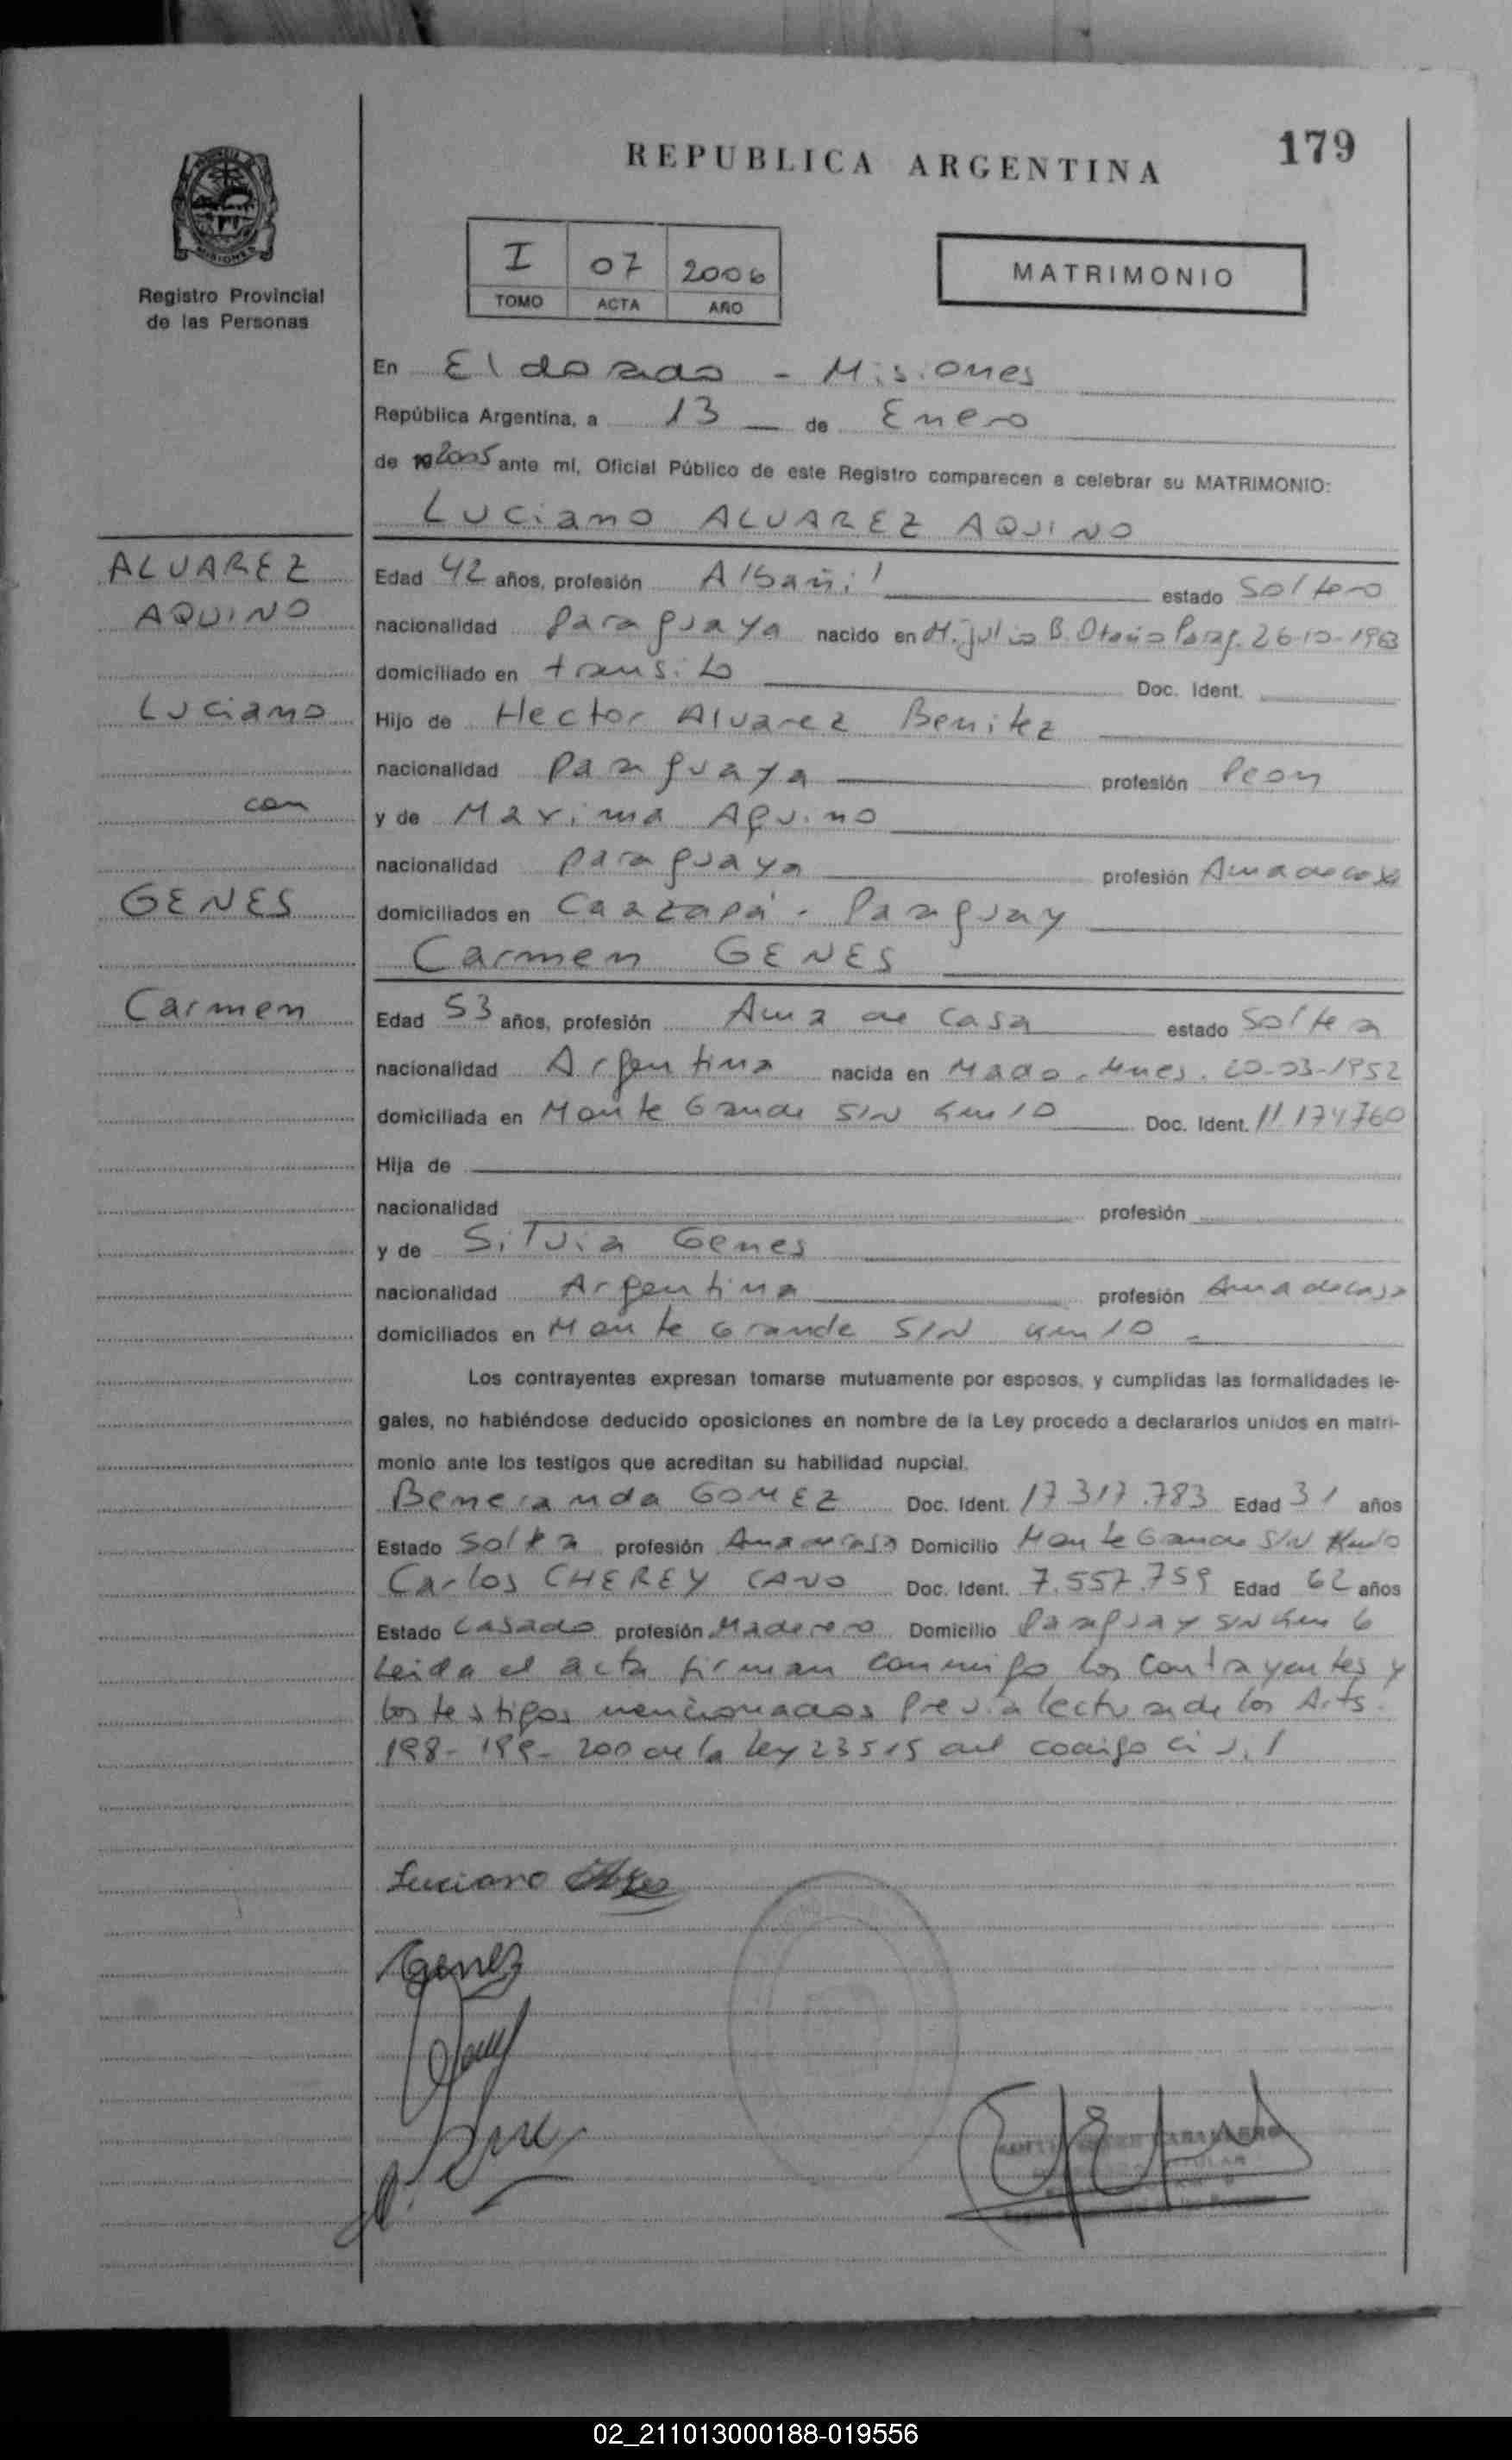 179
REPUBLICA ARGENTINA
I 07 2006
TOMO ACTA AÑO
MATRIMONIO
Registro Provincial
de las Personas
En Eldorado - Misiones
República Argentina, a 13 de Enero
de 192005 ante mí, Oficial Público de este Registro comparecen a celebrar su MATRIMONIO:
Luciano ALVAREZ AQUINO
ALVAREZ
AQUINO
Luciano
con
GENES
Carmen
Edad 42 años, profesión Albañil estado Soltero
nacionalidad Paraguaya nacido en M. Julio B. Otaño Parag. 26-10-1963
domiciliado en transito Doc. Ident.
Hijo de Hector Alvarez Benitez
nacionalidad Paraguaya profesión Peon
y de Maxima Aquino
nacionalidad paraguaya profesión Ama de casa
domiciliados en Caazapá - Paraguay
Carmen GENES
Edad 53 años, profesión Ama de casa estado Soltera
nacionalidad Argentina nacida en Mado. Mnes. 20-03-1952
domiciliada en Monte Grande S/N km 10 Doc. Ident. 11 174760
Hija de
nacionalidad profesión
y de Silvia Genes
nacionalidad Argentina profesión Ama de casa
domiciliados en Monte Grande S/N km 10 -
Los contrayentes expresan tomarse mutuamente por esposos, y cumplidas las formalidades le-
gales, no habiéndose deducido oposiciones en nombre de la Ley procedo a declararlos unidos en matri-
monio ante los testigos que acreditan su habilidad nupcial.
Beneranda GOMEZ Doc. Ident. 17 317.783 Edad 31 años
Estado Soltera profesión Ama de casa Domicilio Monte Grande S/N Km10
Carlos CHEREY CANO Doc. Ident. 7.557.759 Edad 62 años
Estado Casado profesión Maderero Domicilio Paraguay S/N km 6
Leida el acta firman conmigo los contrayentes y
los testigos mencionados previa lectura de los Arts.
198- 199- 200 de la ley 23515 del codigo civil
Luciano
Genez
02_211013000188-019556